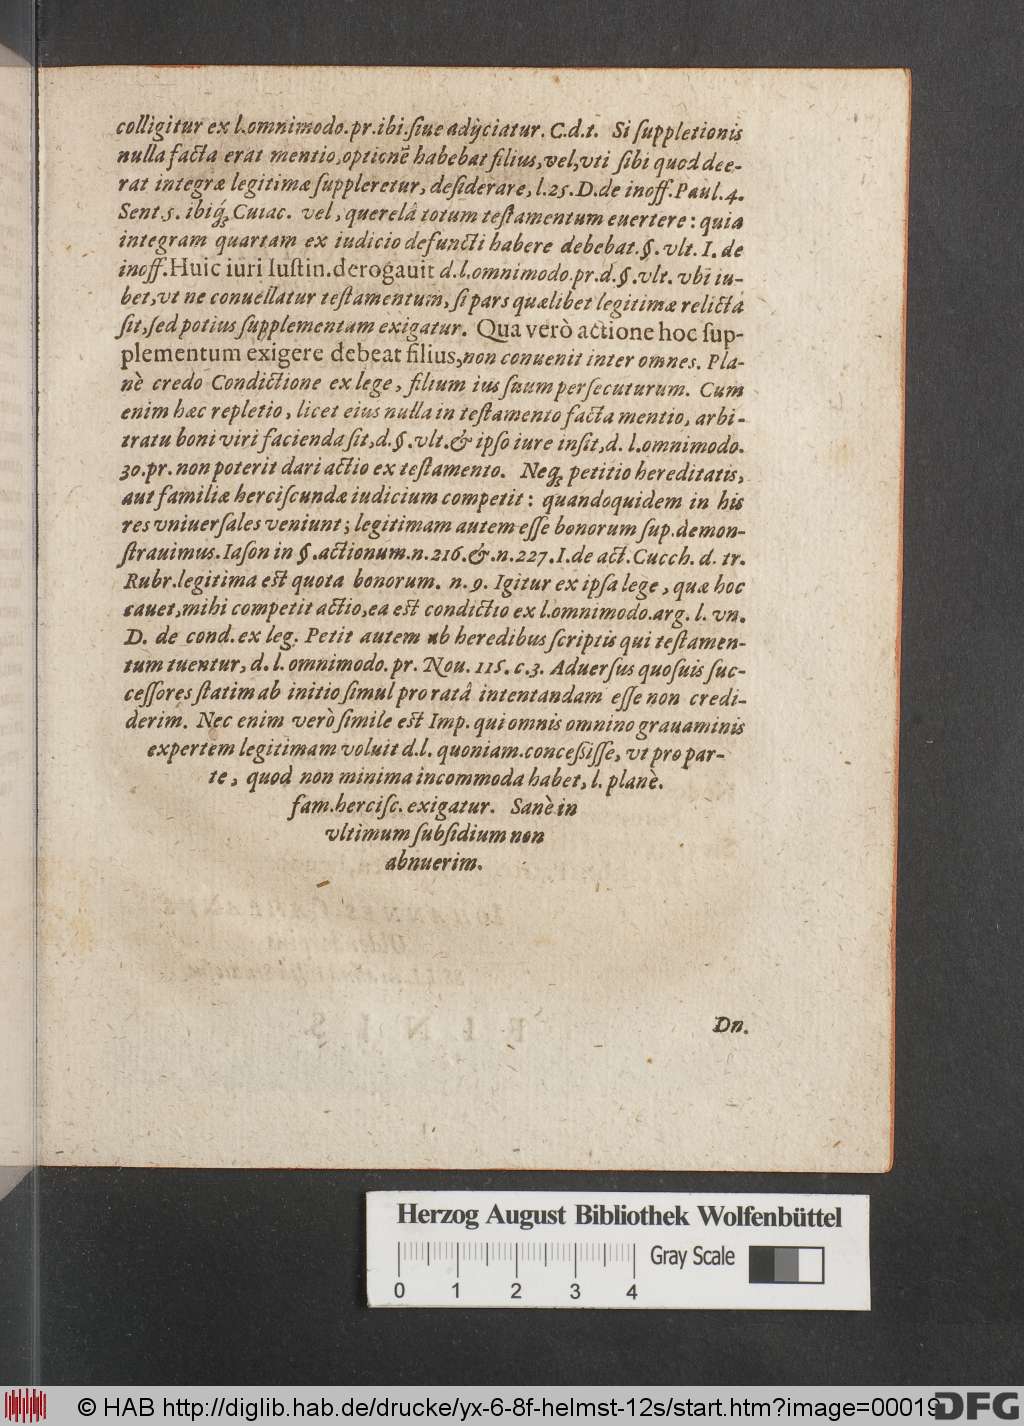 colligitur ex l.omnimodo.pr.ibi.ſiue adijciatur. C.d.t. Si ſuppletionis
nulla facta erat mentio, optionẽ habebat filius, vel, vti ſibi quod dee-
rat integræ legitimæ ſuppleretur, deſiderare, l.25. D.de inoff. Paul. 4.
Sent.5. ibiq́; Cuiac. vel, querelâ totum teſtamentum euertere: quia
integram quartam ex iudicio defuncti habere debebat. §. vlt. I. de
inoff. Huic iuri Iuſtin. derogauit d.l.omnimodo.pr.d.§.vlt. vbi iu-
bet, vt ne conuellatur teſtamentum, ſi pars quælibet legitimæ relicta
ſit, ſed potius ſupplementum exigatur. Qua verò actione hoc ſup-
plementum exigere debeat filius, non conuenit inter omnes. Pla-
nè credo Condictione ex lege, filium ius ſuum perſecuturum. Cum
enim hæc repletio, licet eius nulla in teſtamento facta mentio, arbi-
tratu boni viri facienda ſit, d.§.vlt.& ipſo iure inſit, d. l.omnimodo.
30.pr. non poterit dari actio ex teſtamento. Neq; petitio hereditatis,
aut familiæ herciſcundæ iudicium competit: quandoquidem in his
res vniuerſales veniunt; legitimam autem eſſe bonorum ſup. demon-
ſtrauimus. Iaſon in §. actionum.n.216.&.n.227.I.de act. Cucch. d. tr.
Rubr.legitima est quota bonorum. n.9. Igitur ex ipſa lege, quæ hoc
cauet, mihi competit actio, ea est condictio ex l.omnimodo.arg. l. vn.
D. de cond. ex leg. Petit autem ab heredibus ſcriptis qui teſtamen-
tum tuentur, d. l. omnimodo. pr. Nou. 115. c.3. Aduerſus quoſuis ſuc-
ceſſores ſtatim ab initio ſimul pro ratâ intentandam eſſe non credi-
derim. Nec enim verò ſimile est Imp. qui omnis omnino grauaminis
expertem legitimam voluit d.l. quoniam. conceßiſſe, vt pro par-
te, quod non minima incommoda habet, l. planè.
fam.herciſc. exigatur. Sanè in
vltimum ſubſidium non
abnuerim.
Dn.
Herzog August Bibliothek Wolfenbüttel
Gray Scale
0 1 2 3 4
© HAB http://diglib.hab.de/drucke/yx-6-8f-helmst-12s/start.htm?image=00019
DFG